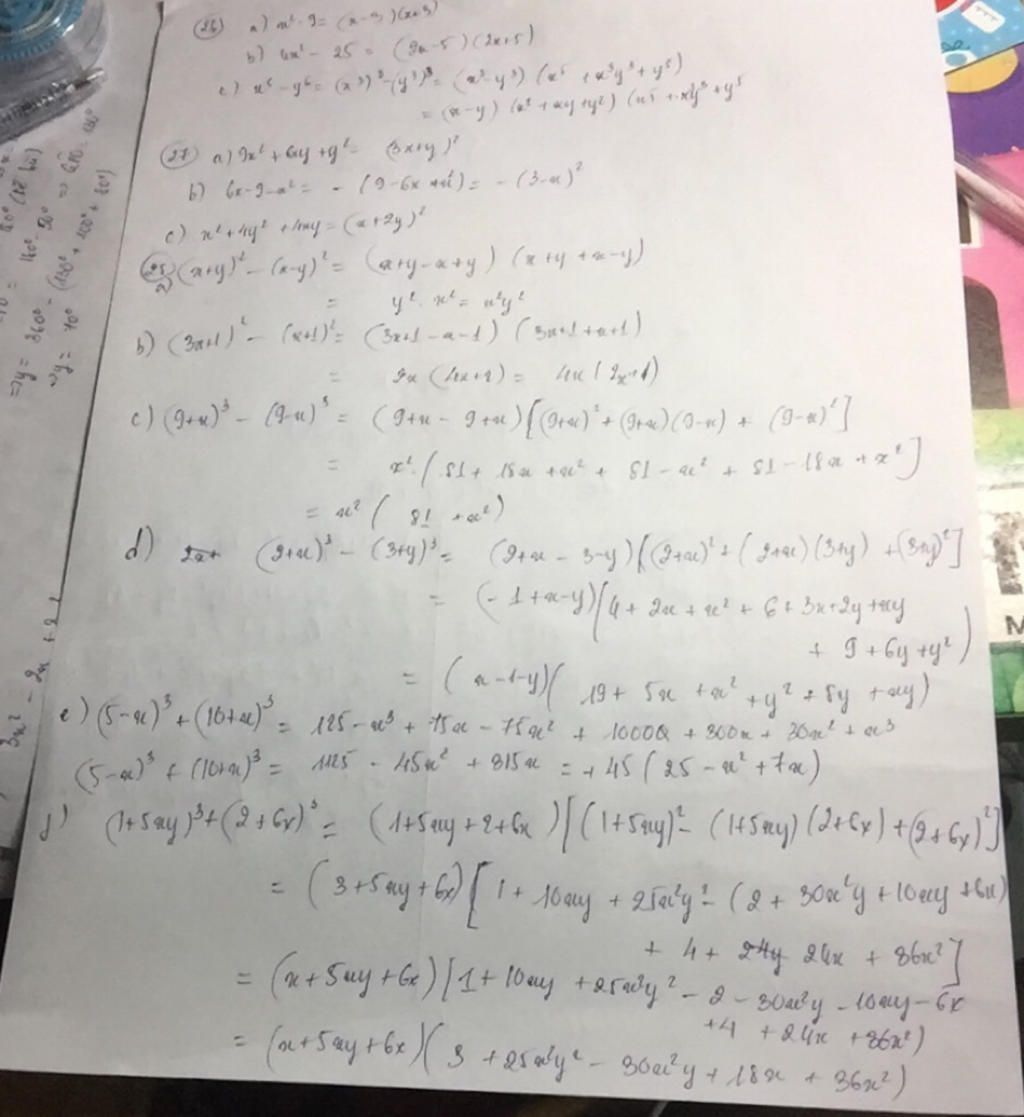 26) a) x² - 9 = (x - 3)(x+3)
b) 4x² - 25 = (2x - 5)(2x+5)
c) x⁶ - y⁶ = (x³)³ - (y³)³ = (x³ - y³)(x⁵ + x³y³ + y⁵)
= (x - y)(x² + xy + y²)(x⁵ + xy³ + y⁵
27) a) 9x² + 6xy + y² = (3x+y)²
b) 6x - 9 - x² = - (9 - 6x + x²) = - (3-x)²
c) x² + 4y² + 4xy = (x + 2y)²
a) (x+y)² - (x-y)² = (x+y - x + y) (x + y + x - y)
= y² . x² = x²y²
b) (3x+1)² - (x+1)² = (3x+1 - x - 1) (3x+1 + x+1)
= 2x (4x+2) = 4x (2x+1)
c) (9+x)³ - (9-x)³ = (9+x - 9+x) [(9+x)² + (9+x)(9-x) + (9-x)²]
= x² . [81 + 18x + x² + 81 - x² + 81 - 18x + x²]
= x² (81 + x²)
d) (2+x)³ - (3+y)³ = (2+x - 3-y) [(2+x)² + (2+x)(3+y) + (3+y)²]
= (-1+x-y) (4 + 2x + x² + 6 + 3x+2y+xy
+ 9 + 6y + y²)
= (x-1-y) (19 + 5x + x² + y² + 8y + xy)
e) (5-x)³ + (10+x)³ = 125 - x³ + 75x - 75x² + 1000 + 300x + 30x² + x³
(5-x)³ + (10+x)³ = 1125 - 45x² + 315x = +45 (25 - x² + 7x)
f) (1+5xy)³ + (2+6x)³ = (1+5xy+2+6x) [(1+5xy)² - (1+5xy)(2+6x) + (2+6x)²]
= (3+5xy+6x) [1 + 10xy + 25x²y² - (2 + 30x²y + 10xy + 6x)
+ 4 + 24x + 36x²]
= (x+5xy+6x) [1 + 10xy + 25x²y² - 2 - 30x²y - 10xy - 6x
+4 + 24x + 36x²)
= (x+5xy+6x) (3 + 25x²y² - 30x²y + 18x + 36x²)
⇒ y = 360° - (130° + 100° + 80°)
⇒ y = 70°
3x² - 2x + 2
M